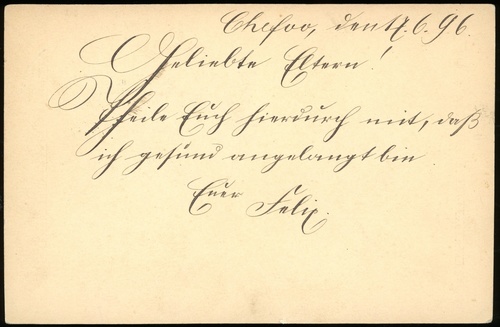 Chefoo, den 17.6.96.
Geliebte Eltern!
Theile Euch hierdurch mit, daß
ich gesund angelangt bin
Euer Felix.